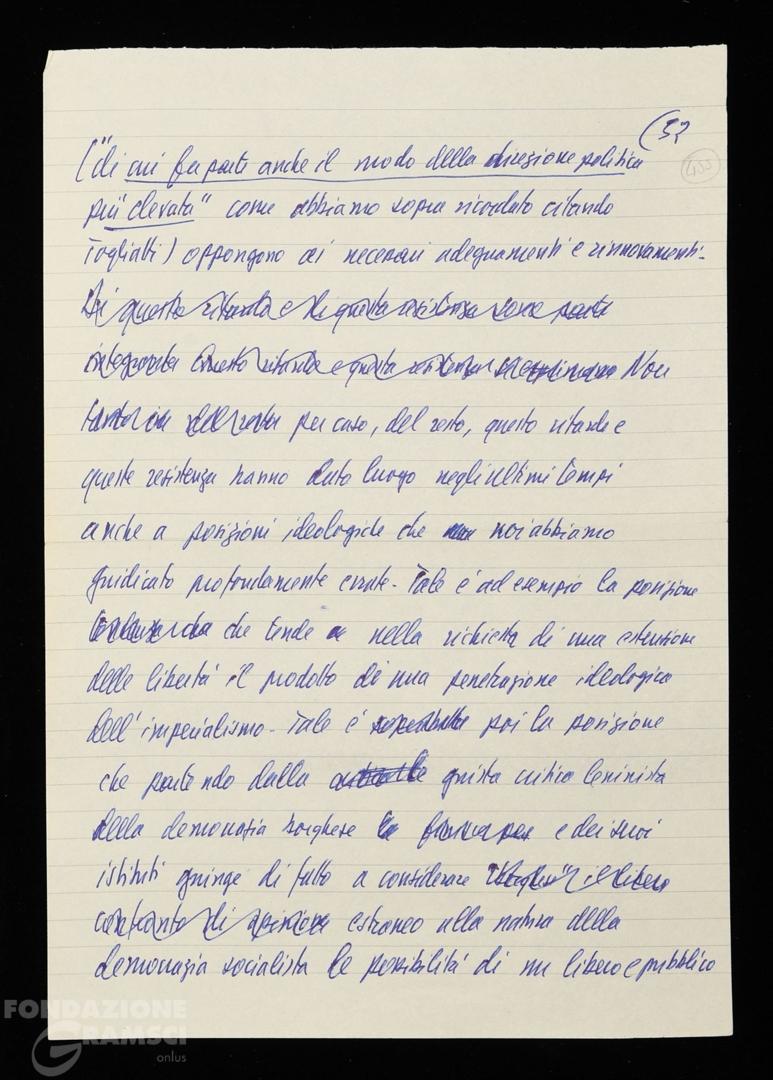 (32
455
("di cui fa parte anche il modo della direzione politica
più elevata" come abbiamo sopra ricordato citando
Togliatti) oppongono ai necessari adeguamenti e rinnovamenti.
Di questo ritardo e di questa resistenza sono parte
integrante questo ritardo e questa resistenza Non
per caso, del resto, questo ritardo e
queste resistenza hanno dato luogo negli ultimi tempi
anche a posizioni ideologiche che noi abbiamo
giudicato profondamente errate. Tale è ad esempio la posizione
che tende a nella richiesta di una estensione
delle libertà il prodotto di una penetrazione ideologica
dell'imperialismo. Tale è poi la posizione
che partendo dalla giusta critica leninista
della democrazia borghese e dei suoi
istituti giunge di fatto a considerare il libero
confronto di opinioni estraneo alla natura della
democrazia socialista le possibilità di un libero e pubblico
FONDAZIONE
GRAMSCI
onlus